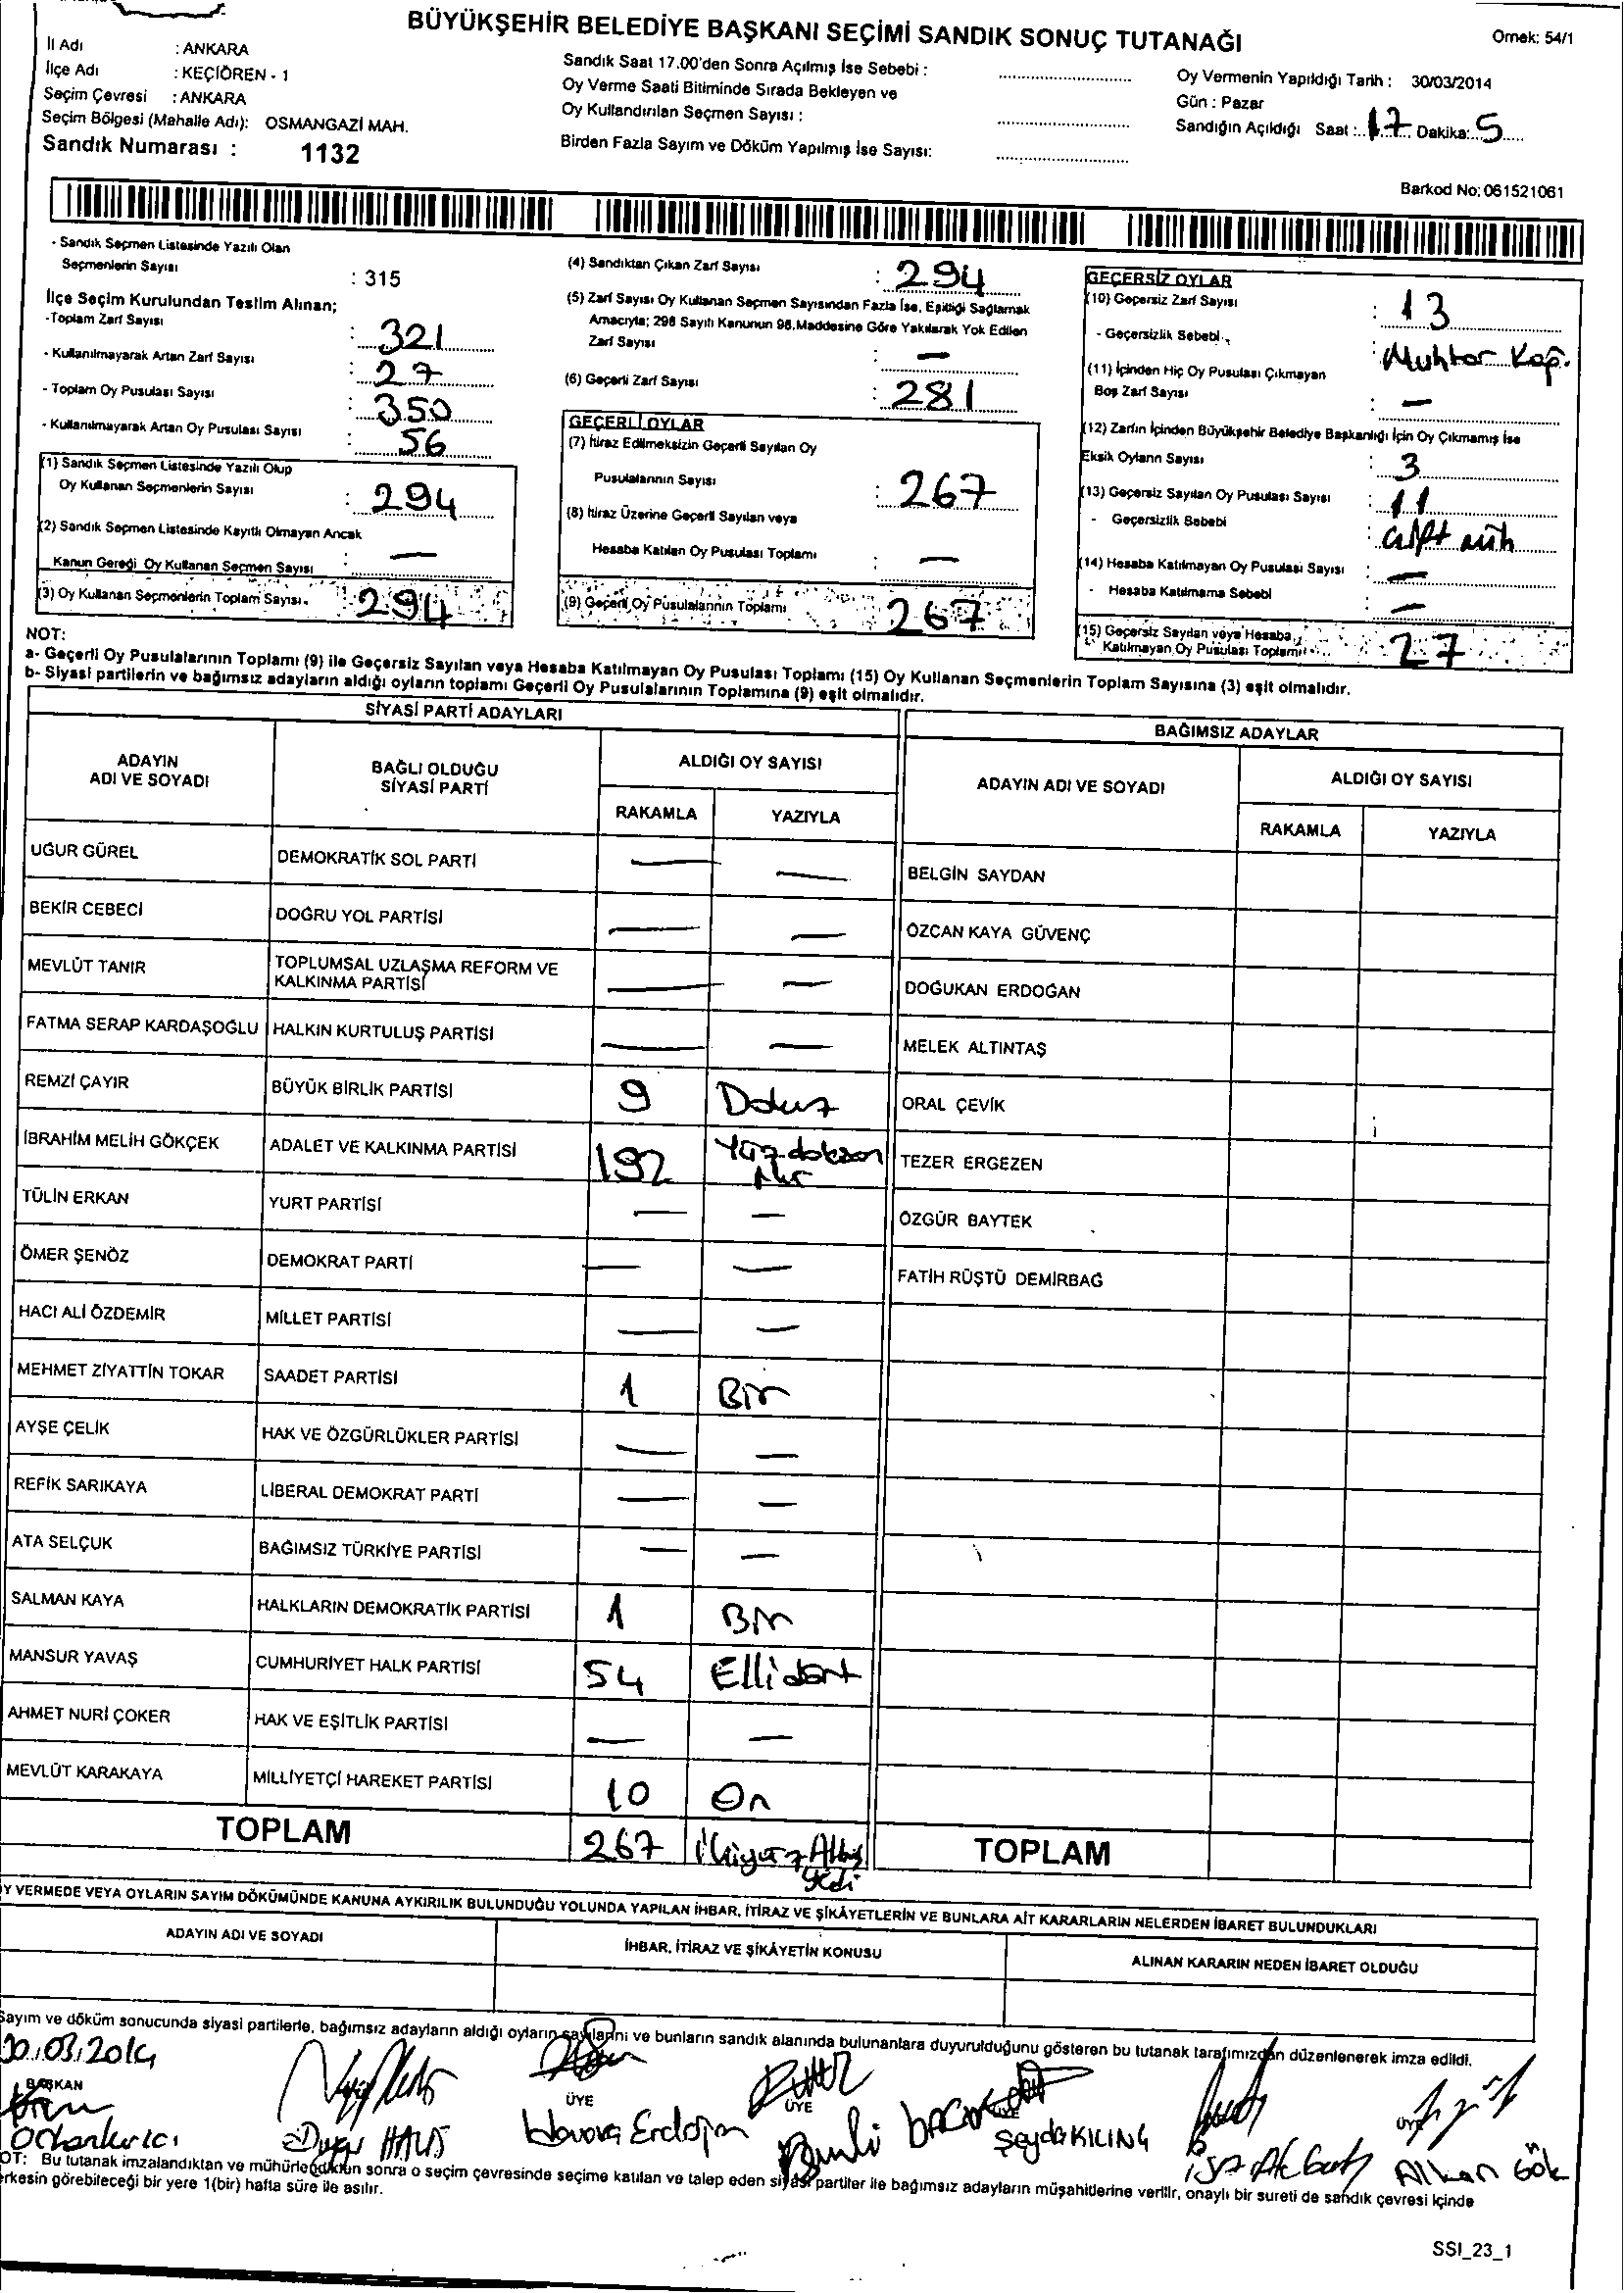 BÜYÜKŞEHİR BELEDİYE BAŞKANI SEÇİMİ SANDIK SONUÇ TUTANAĞI
Örnek: 54/1
İl Adı : ANKARA
İlçe Adı : KEÇİÖREN - 1
Seçim Çevresi : ANKARA
Seçim Bölgesi (Mahalle Adı): OSMANGAZİ MAH.
Sandık Numarası : 1132
Sandık Saat 17.00'den Sonra Açılmış İse Sebebi :
Oy Verme Saati Bitiminde Sırada Bekleyen ve
Oy Kullandırılan Seçmen Sayısı :
Birden Fazla Sayım ve Döküm Yapılmış İse Sayısı:
Oy Vermenin Yapıldığı Tarih : 30/03/2014
Gün : Pazar
Sandığın Açıldığı Saat : 17 Dakika: 5
Barkod No: 061521061
- Sandık Seçmen Listesinde Yazılı Olan
Seçmenlerin Sayısı : 315
İlçe Seçim Kurulundan Teslim Alınan;
-Toplam Zarf Sayısı : 321
- Kullanılmayarak Artan Zarf Sayısı : 27
- Toplam Oy Pusulası Sayısı : 350
- Kullanılmayarak Artan Oy Pusulası Sayısı : 56
(1) Sandık Seçmen Listesinde Yazılı Olup
Oy Kullanan Seçmenlerin Sayısı : 294
(2) Sandık Seçmen Listesinde Kayıtlı Olmayan Ancak
Kanun Gereği Oy Kullanan Seçmen Sayısı : —
(3) Oy Kullanan Seçmenlerin Toplam Sayısı. : 294
(4) Sandıktan Çıkan Zarf Sayısı : 294
(5) Zarf Sayısı Oy Kullanan Seçmen Sayısından Fazla İse, Eşitliği Sağlamak
Amacıyla; 298 Sayılı Kanunun 98.Maddesine Göre Yakılarak Yok Edilen
Zarf Sayısı : —
(6) Geçerli Zarf Sayısı : 281
GEÇERLİ OYLAR
(7) İtiraz Edilmeksizin Geçerli Sayılan Oy
Pusulalarının Sayısı : 267
(8) İtiraz Üzerine Geçerli Sayılan veya
Hesaba Katılan Oy Pusulası Toplamı : —
(9) Geçerli Oy Pusulalarının Toplamı 267
GEÇERSİZ OYLAR
(10) Geçersiz Zarf Sayısı : 13
- Geçersizlik Sebebi : Muhtar Kap.
(11) İçinden Hiç Oy Pusulası Çıkmayan
Boş Zarf Sayısı : —
(12) Zarfın İçinden Büyükşehir Belediye Başkanlığı İçin Oy Çıkmamış İse
Eksik Oyların Sayısı : 3
(13) Geçersiz Sayılan Oy Pusulası Sayısı : 11
- Geçersizlik Sebebi : Çift müh
(14) Hesaba Katılmayan Oy Pusulası Sayısı : —
- Hesaba Katılmama Sebebi —
(15) Geçersiz Sayılan veya Hesaba
Katılmayan Oy Pusulası Toplamı 27
NOT:
a- Geçerli Oy Pusulalarının Toplamı (9) ile Geçersiz Sayılan veya Hesaba Katılmayan Oy Pusulası Toplamı (15) Oy Kullanan Seçmenlerin Toplam Sayısına (3) eşit olmalıdır.
b- Siyasi partilerin ve bağımsız adayların aldığı oyların toplamı Geçerli Oy Pusulalarının Toplamına (9) eşit olmalıdır.
SİYASİ PARTİ ADAYLARI
ADAYIN
ADI VE SOYADI
BAĞLI OLDUĞU
SİYASİ PARTİ
ALDIĞI OY SAYISI
RAKAMLA YAZIYLA
UĞUR GÜREL DEMOKRATİK SOL PARTİ — —
BEKİR CEBECİ DOĞRU YOL PARTİSİ — —
MEVLÜT TANIR TOPLUMSAL UZLAŞMA REFORM VE
KALKINMA PARTİSİ — —
FATMA SERAP KARDAŞOĞLU HALKIN KURTULUŞ PARTİSİ — —
REMZİ ÇAYIR BÜYÜK BİRLİK PARTİSİ 9 Dokuz
İBRAHİM MELİH GÖKÇEK ADALET VE KALKINMA PARTİSİ 192 Yüzdoksan
TÜLİN ERKAN YURT PARTİSİ — —
ÖMER ŞENÖZ DEMOKRAT PARTİ — —
HACI ALİ ÖZDEMİR MİLLET PARTİSİ — —
MEHMET ZİYATTİN TOKAR SAADET PARTİSİ 1 Bir
AYŞE ÇELİK HAK VE ÖZGÜRLÜKLER PARTİSİ — —
REFİK SARIKAYA LİBERAL DEMOKRAT PARTİ — —
ATA SELÇUK BAĞIMSIZ TÜRKİYE PARTİSİ — —
SALMAN KAYA HALKLARIN DEMOKRATİK PARTİSİ 1 Bir
MANSUR YAVAŞ CUMHURİYET HALK PARTİSİ 54 Ellidört
AHMET NURİ ÇOKER HAK VE EŞİTLİK PARTİSİ — —
MEVLÜT KARAKAYA MİLLİYETÇİ HAREKET PARTİSİ 10 On
TOPLAM 267 İkiyüzAltmış
Yedi
BAĞIMSIZ ADAYLAR
ADAYIN ADI VE SOYADI
ALDIĞI OY SAYISI
RAKAMLA YAZIYLA
BELGİN SAYDAN
ÖZCAN KAYA GÜVENÇ
DOĞUKAN ERDOĞAN
MELEK ALTINTAŞ
ORAL ÇEVİK
TEZER ERGEZEN
ÖZGÜR BAYTEK
FATİH RÜŞTÜ DEMİRBAĞ
TOPLAM
Y VERMEDE VEYA OYLARIN SAYIM DÖKÜMÜNDE KANUNA AYKIRILIK BULUNDUĞU YOLUNDA YAPILAN İHBAR, İTİRAZ VE ŞİKÂYETLERİN VE BUNLARA AİT KARARLARIN NELERDEN İBARET BULUNDUKLARI
ADAYIN ADI VE SOYADI
İHBAR, İTİRAZ VE ŞİKÂYETİN KONUSU
ALINAN KARARIN NEDEN İBARET OLDUĞU
Sayım ve döküm sonucunda siyasi partilerle, bağımsız adayların aldığı oyların sayılarını ve bunların sandık alanında bulunanlara duyurulduğunu gösteren bu tutanak tarafımızdan düzenlenerek imza edildi.
30.03.2014
BAŞKAN
ÜYE
ÜYE
Duygu HALIS
Havova Erdoğan
Şeyda KILINÇ
İsa Akbaş
Alkan Gök
OT: Bu tutanak imzalandıktan ve mühürlendikten sonra o seçim çevresinde seçime katılan ve talep eden siyasi partiler ile bağımsız adayların müşahitlerine verilir, onaylı bir sureti de sandık çevresi içinde
erkesin görebileceği bir yere 1(bir) hafta süre ile asılır.
SSI_23_1